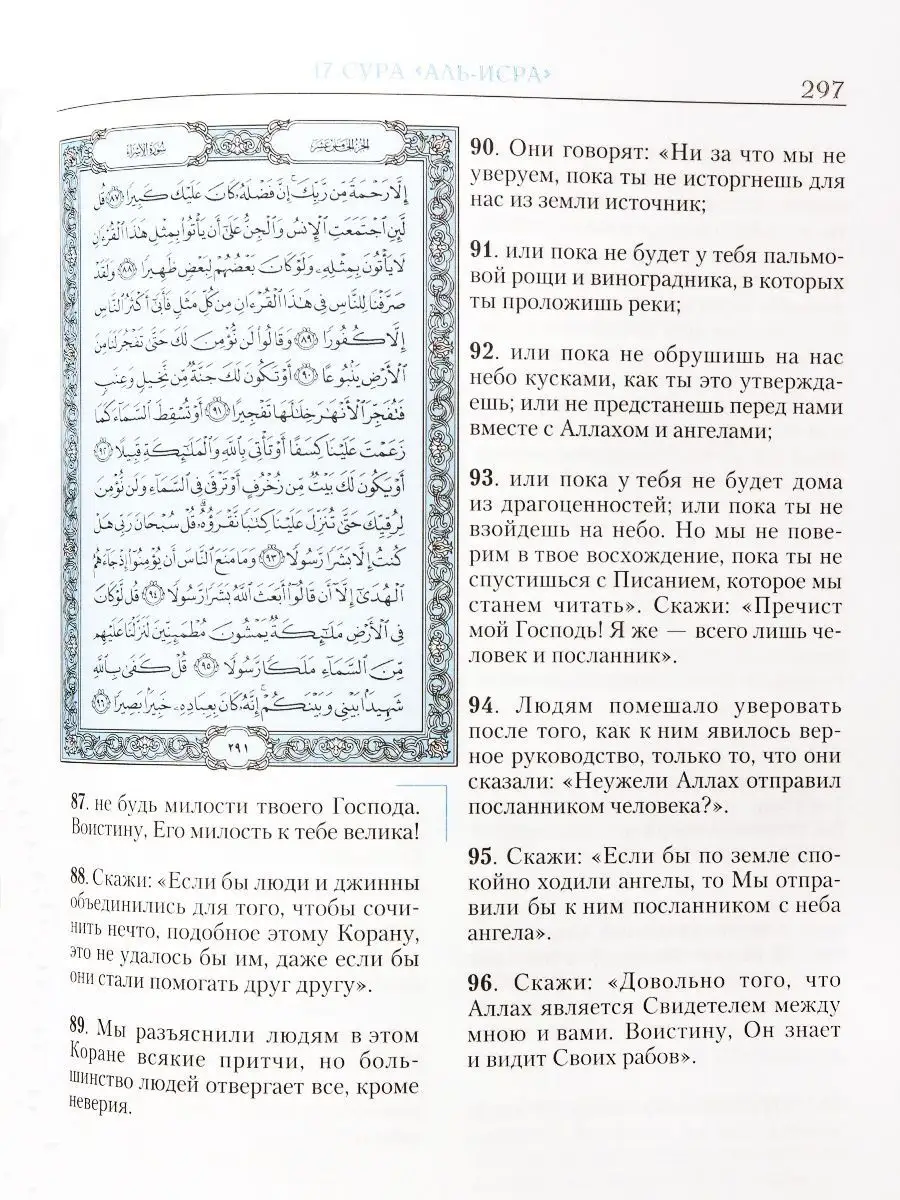 17 СУРА «АЛЬ-ИСРА»
297
سُورَةُ الإِسْرَاء
الجُزْءُ الخَامِسَ عَشَرَ
إِلَّا رَحْمَةً مِّن رَّبِّكَ ۚ إِنَّ فَضْلَهُۥ كَانَ عَلَيْكَ كَبِيرًا ٨٧ قُل
لَّئِنِ ٱجْتَمَعَتِ ٱلْإِنسُ وَٱلْجِنُّ عَلَىٰٓ أَن يَأْتُوا۟ بِمِثْلِ هَٰذَا ٱلْقُرْءَانِ
لَا يَأْتُونَ بِمِثْلِهِۦ وَلَوْ كَانَ بَعْضُهُمْ لِبَعْضٍ ظَهِيرًا ٨٨ وَلَقَدْ
صَرَّفْنَا لِلنَّاسِ فِى هَٰذَا ٱلْقُرْءَانِ مِن كُلِّ مَثَلٍ فَأَبَىٰٓ أَكْثَرُ ٱلنَّاسِ
إِلَّا كُفُورًا ٨٩ وَقَالُوا۟ لَن نُّؤْمِنَ لَكَ حَتَّىٰ تَفْجُرَ لَنَا مِنَ
ٱلْأَرْضِ يَنۢبُوعًا ٩٠ أَوْ تَكُونَ لَكَ جَنَّةٌ مِّن نَّخِيلٍ وَعِنَبٍ
فَتُفَجِّرَ ٱلْأَنْهَٰرَ خِلَٰلَهَا تَفْجِيرًا ٩١ أَوْ تُسْقِطَ ٱلسَّمَآءَ كَمَا
زَعَمْتَ عَلَيْنَا كِسَفًا أَوْ تَأْتِىَ بِٱللَّهِ وَٱلْمَلَٰٓئِكَةِ قَبِيلًا ٩٢
أَوْ يَكُونَ لَكَ بَيْتٌ مِّن زُخْرُفٍ أَوْ تَرْقَىٰ فِى ٱلسَّمَآءِ وَلَن نُّؤْمِنَ
لِرُقِيِّكَ حَتَّىٰ تُنَزِّلَ عَلَيْنَا كِتَٰبًا نَّقْرَؤُهُۥ ۗ قُلْ سُبْحَانَ رَبِّى هَلْ
كُنتُ إِلَّا بَشَرًا رَّسُولًا ٩٣ وَمَا مَنَعَ ٱلنَّاسَ أَن يُؤْمِنُوٓا۟ إِذْ جَآءَهُمُ
ٱلْهُدَىٰٓ إِلَّآ أَن قَالُوٓا۟ أَبَعَثَ ٱللَّهُ بَشَرًا رَّسُولًا ٩٤ قُل لَّوْ كَانَ
فِى ٱلْأَرْضِ مَلَٰٓئِكَةٌ يَمْشُونَ مُطْمَئِنِّينَ لَنَزَّلْنَا عَلَيْهِم
مِّنَ ٱلسَّمَآءِ مَلَكًا رَّسُولًا ٩٥ قُلْ كَفَىٰ بِٱللَّهِ
شَهِيدًۢا بَيْنِى وَبَيْنَكُمْ ۚ إِنَّهُۥ كَانَ بِعِبَادِهِۦ خَبِيرًۢا بَصِيرًا ٩٦
٢٩١
87. не будь милости твоего Господа.
Воистину, Его милость к тебе велика!
88. Скажи: «Если бы люди и джинны
объединились для того, чтобы сочи-
нить нечто, подобное этому Корану,
это не удалось бы им, даже если бы
они стали помогать друг другу».
89. Мы разъяснили людям в этом
Коране всякие притчи, но боль-
шинство людей отвергает все, кроме
неверия.
90. Они говорят: «Ни за что мы не
уверуем, пока ты не исторгнешь для
нас из земли источник;
91. или пока не будет у тебя пальмо-
вой рощи и виноградника, в которых
ты проложишь реки;
92. или пока не обрушишь на нас
небо кусками, как ты это утвержда-
ешь; или не предстанешь перед нами
вместе с Аллахом и ангелами;
93. или пока у тебя не будет дома
из драгоценностей; или пока ты не
взойдешь на небо. Но мы не пове-
рим в твое восхождение, пока ты не
спустишься с Писанием, которое мы
станем читать». Скажи: «Пречист
мой Господь! Я же — всего лишь че-
ловек и посланник».
94. Людям помешало уверовать
после того, как к ним явилось вер-
ное руководство, только то, что они
сказали: «Неужели Аллах отправил
посланником человека?».
95. Скажи: «Если бы по земле спо-
койно ходили ангелы, то Мы отпра-
вили бы к ним посланником с неба
ангела».
96. Скажи: «Довольно того, что
Аллах является Свидетелем между
мною и вами. Воистину, Он знает
и видит Своих рабов».